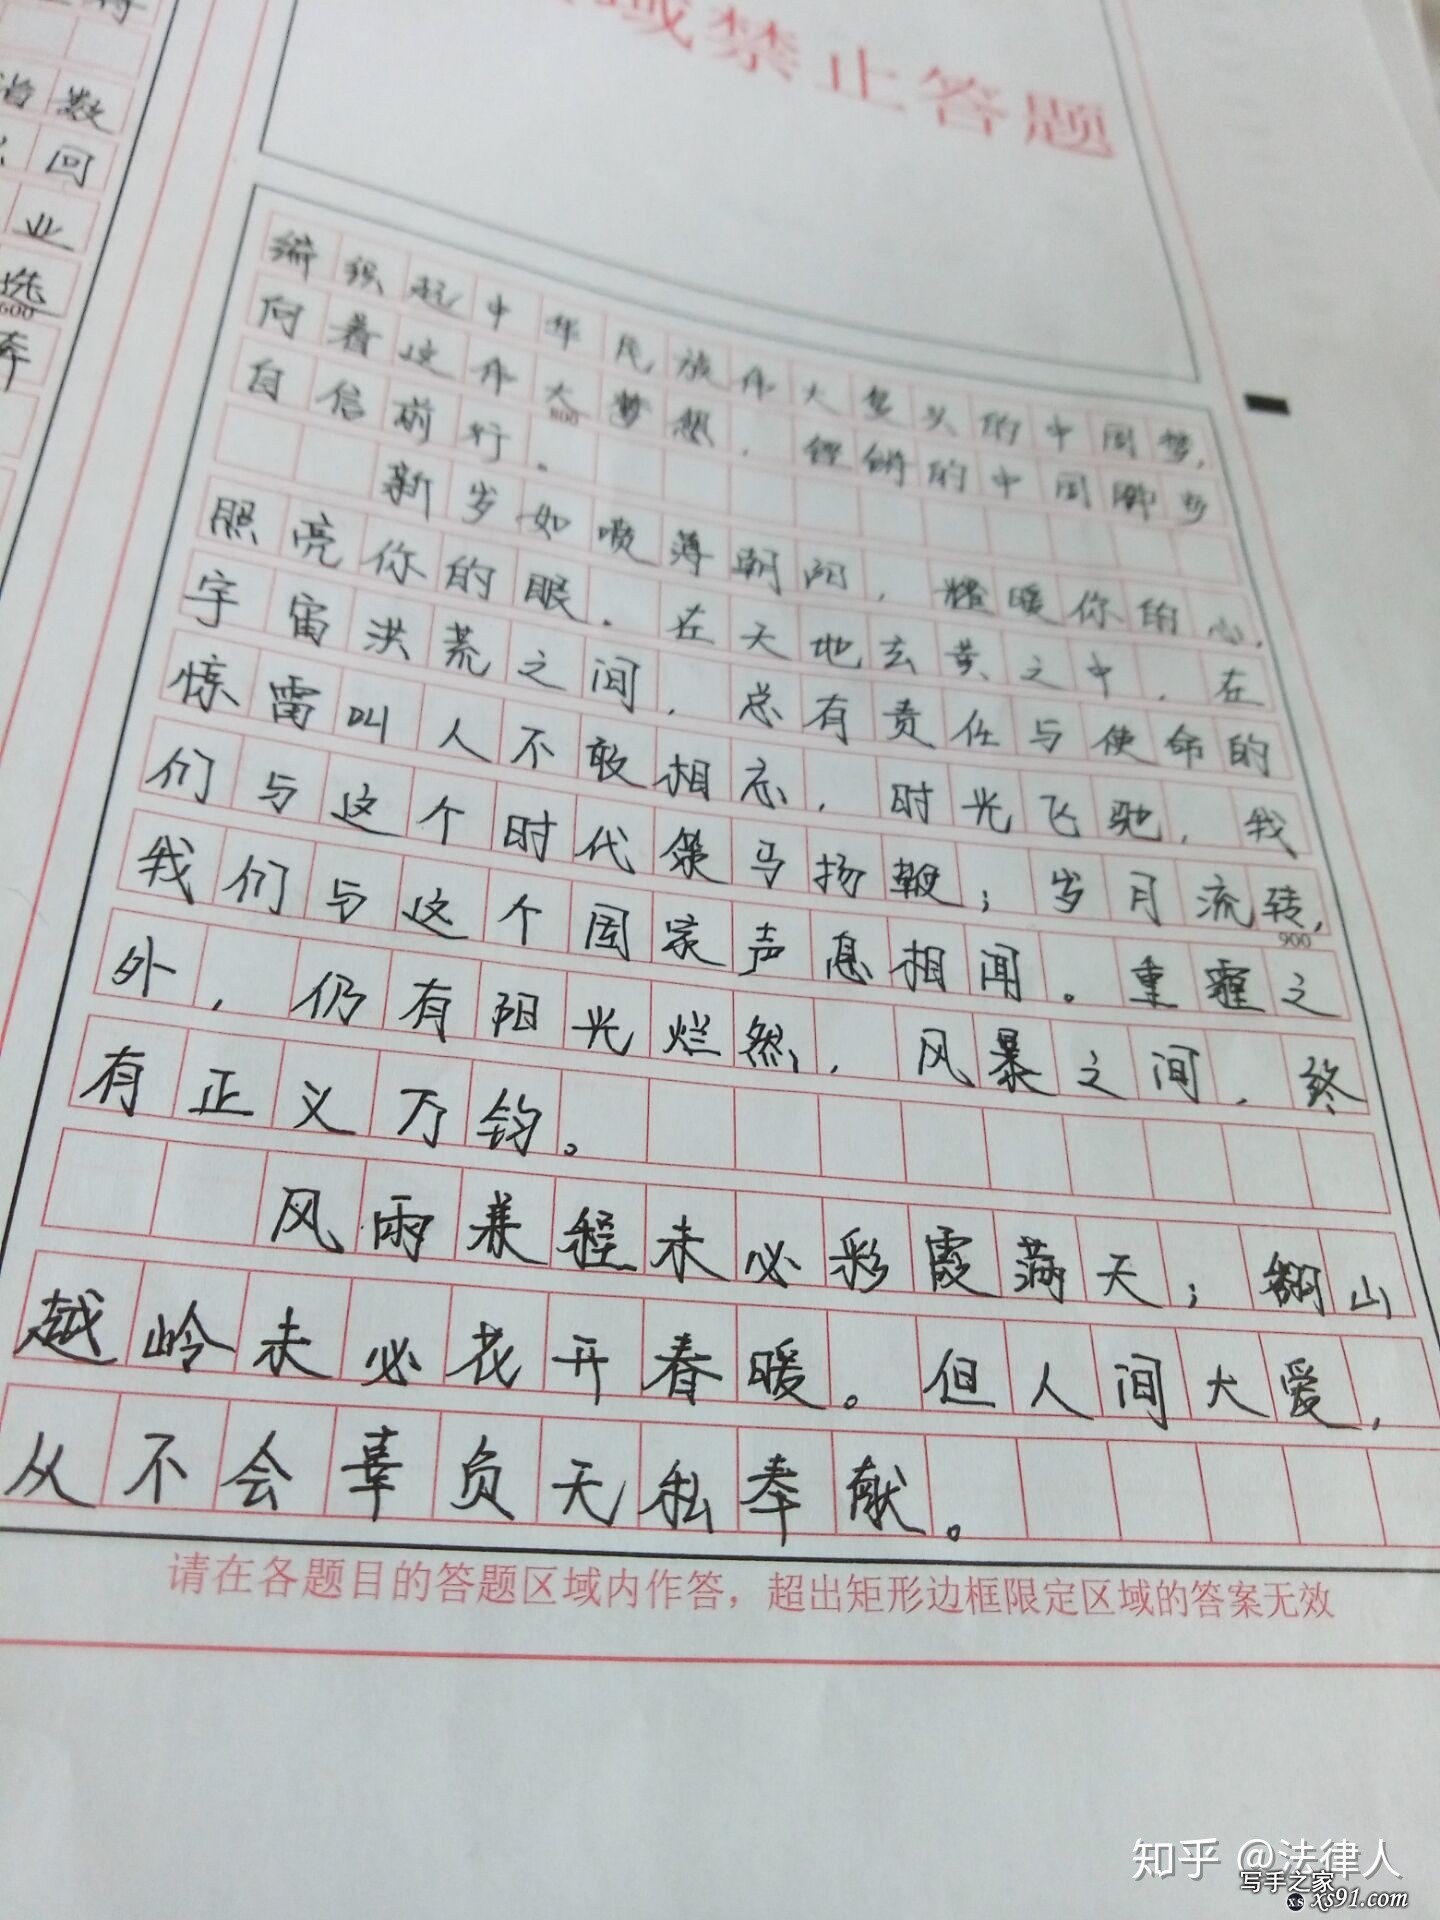 域禁止答题
数
回
业
选
600
编织起中华民族伟大复兴的中国梦,
向着这伟大梦想,铿锵的中国脚步
800
自信前行。
新岁如喷薄朝阳,耀暖你的心,
照亮你的眼。在天地玄黄之中,在
宇宙洪荒之间,总有责任与使命的
惊雷叫人不敢相忘,时光飞驰,我
们与这个时代策马扬鞭;岁月流转,
900
我们与这个国家声息相闻。重霾之
外,仍有阳光烂然,风暴之间,终
有正义万钧。
风雨兼程未必彩霞满天;翻山
越岭未必花开春暖。但人间大爱,
从不会辜负无私奉献。
请在各题目的答题区域内作答,超出矩形边框限定区域的答案无效
知乎 @法律人
写手之家
xs xs91.com